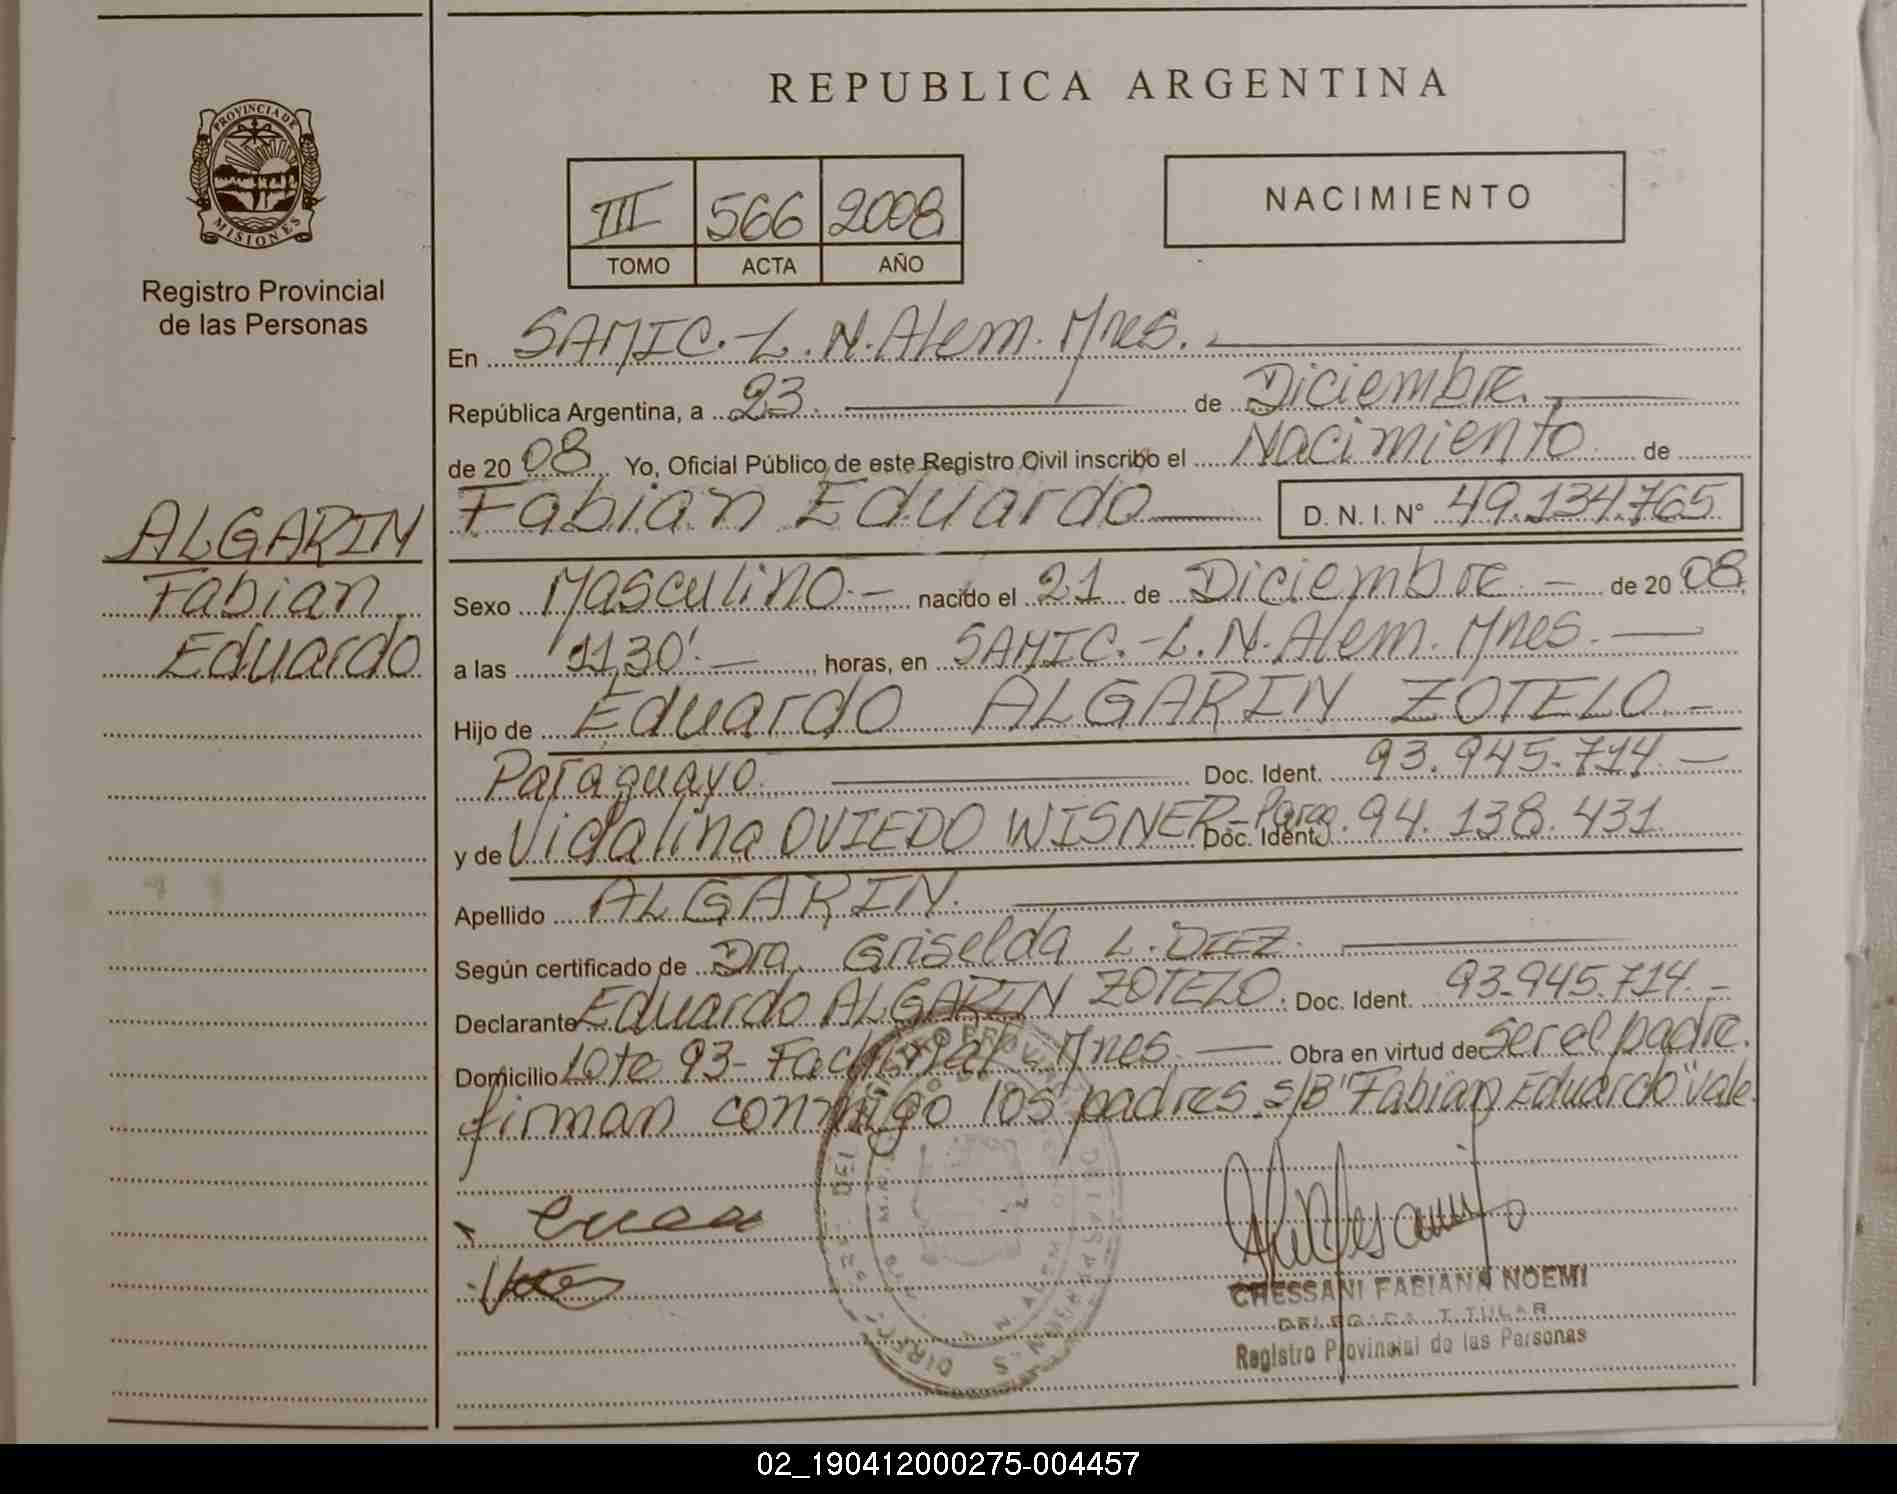 REPUBLICA ARGENTINA
PROVINCIA DE MISIONES
Registro Provincial
de las Personas
III 566 2008
TOMO ACTA AÑO
NACIMIENTO
En SAMIC.-L.N.Alem.Mnes.
República Argentina, a 23. de Diciembre.
de 20 08. Yo, Oficial Público de este Registro Civil inscribo el Nacimiento de
Fabian Eduardo D. N. I. N° 49.134.765
ALGARIN
Fabian
Eduardo
Sexo Masculino.- nacido el 21 de Diciembre.- de 20 08
a las 11,30'.- horas, en SAMIC.-L.N.Alem.Mnes.
Hijo de Eduardo ALGARIN ZOTELO.-
Paraguayo. Doc. Ident. 93.945.714.-
y de Vidalina OVIEDO WISNER-Parag. Doc. Ident. 94.138.431
Apellido ALGARIN.
Según certificado de Dra. Griselda L. DIEZ.
Declarante Eduardo ALGARIN ZOTELO. Doc. Ident. 93.945.714.-
Domicilio Lote 93- Fachinal Mnes. Obra en virtud de ser el padre.
firman conmigo los padres. s/B "Fabian Eduardo" Vale.
CHESSANI FABIANA NOEMI
DELEGADA TITULAR
Registro Provincial de las Personas
02_190412000275-004457